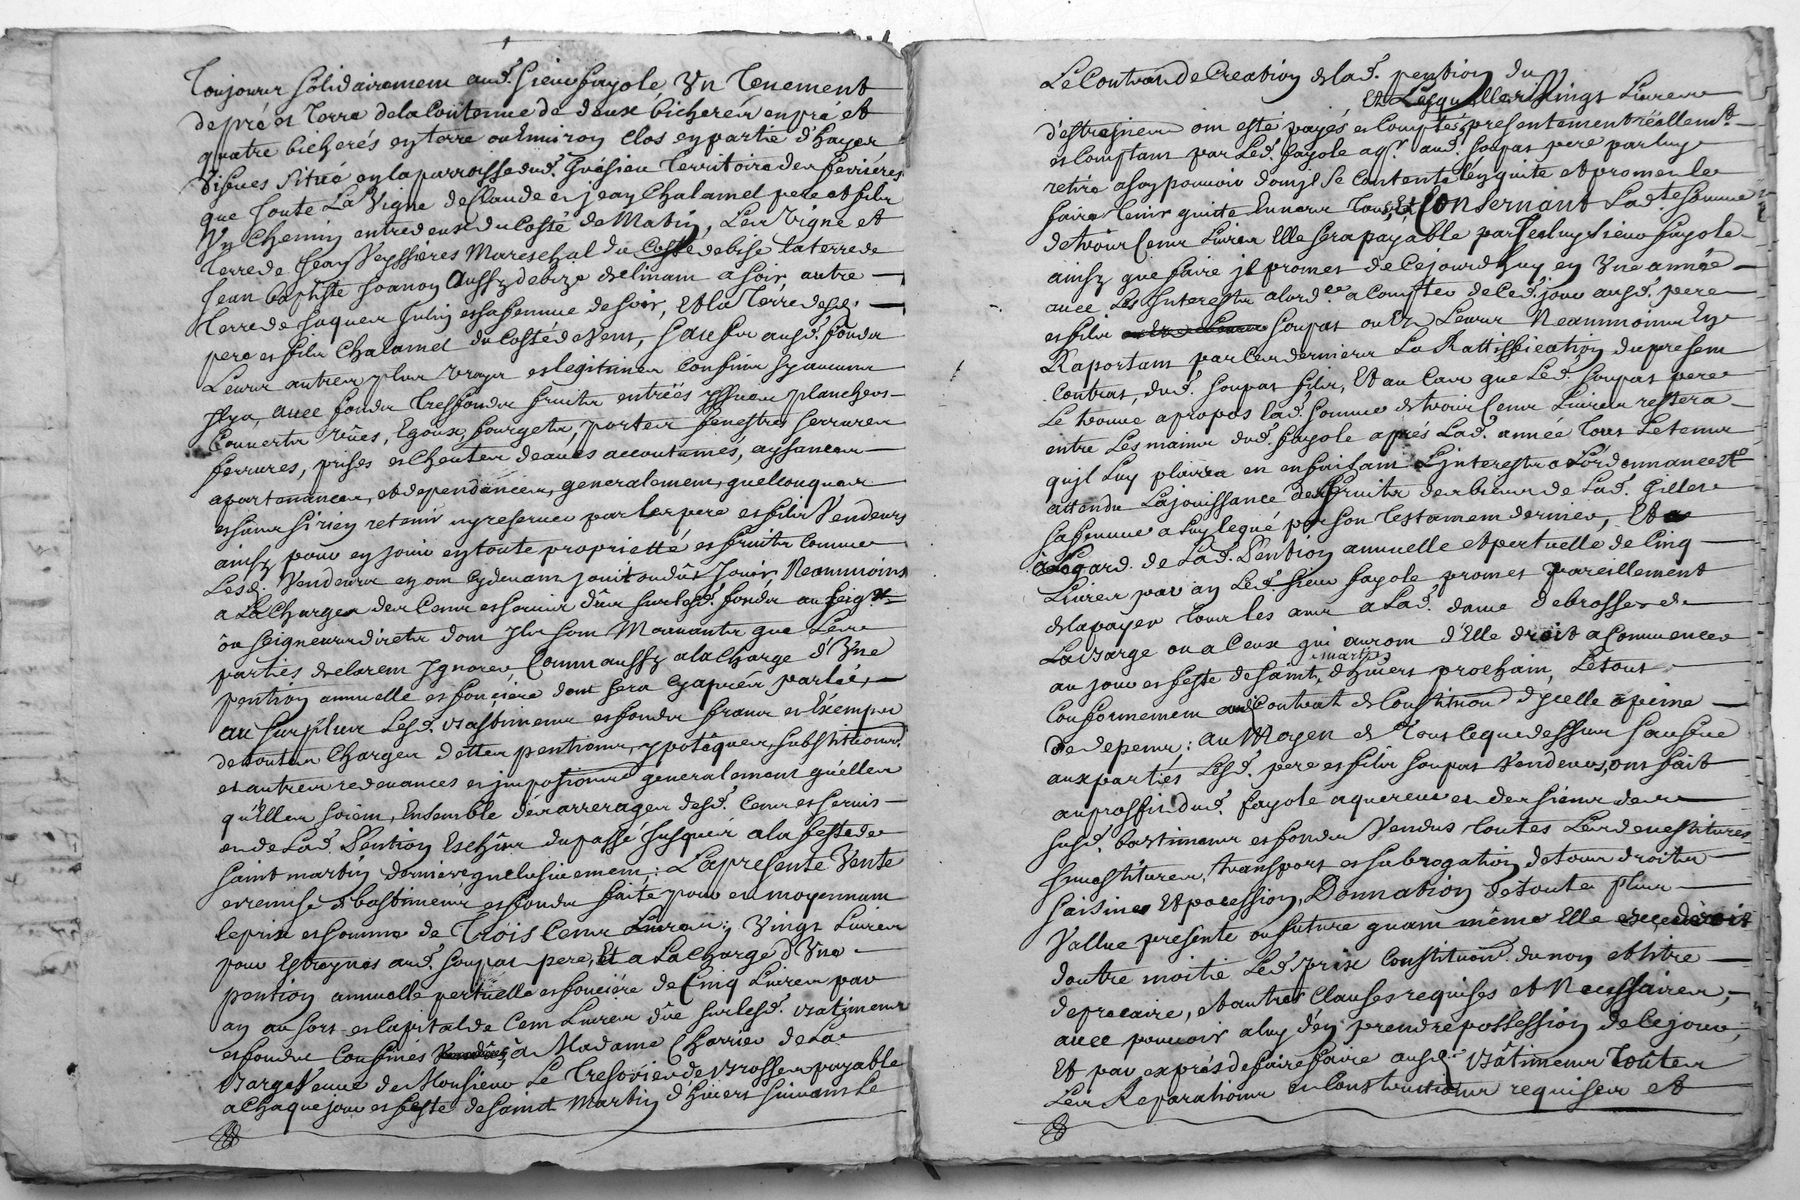 Toujours solidairement aud. sieur fayole, Un Tenement
de pré et Terre de la Contenue de deux bicherés en pré et
quatre bicherés en terre ou Environ clos en partie d'hayes
Vifues Situé en la parroisse dud. Grésieu Territoire des ferriéres
que Joute La Vigne de Claude et jean Chalamel pere et fils
Un Chemin entredeux du Costé de Matin, Les Vigne et
Terre de Jean Veyssiéres Mareschal du Costé de bise la terre de
Jean baptiste Joanon Aussy de bize declinant a soir, autre
Terre de Jaques Julin et sa femme de soir, Et la Terre desd.
pere et fils Chalamel du Costé de Vent, Sauf sur ausd. fonds
Leurs autres plus vrays et legitimes Confins sy aucuns
Il y a, avec fonds Tresfonds fruits entrées yssues planchers
Couverts rües, Egoux, fourgets, portes fenestres serrures
ferrures, prises et Cheutes deaues accoutumés, aysances
apartenances, et dependances, generalement quelconques
et sans si rien retenir ny reserver par les pere et fils Vendeurs
ainsy pour en jouir en toute proprietté et fruits comme
Lesd. Vendeurs en ont cydevant jouit ou dût Jouir, Neammoins
a La Charges des Cens et servis dûs sur lesd. fonds au seigr.
ôu seigneurs directs dont Ils sont Mouvants que Les
parties declarent Ignorer Comm aussy a la Charge d'Une
pention annuelle et fonçiére dont sera cyaprés parlée,
au surplus Lesd. bastiments et fonds francs et Exempts
de toutes Charges dettes pentions, ypotêques, substitutions
et autres redevances et impositions generalement quelles
qu'Elles soient, Ensemble des arrerages desd. Cens et servis
et de Lad. Pention Eschûs du passé Jusques a la feste de
saint martin derniére Inclusivement; La presente Vente
et remise de bastiments et fonds faite pour et moyennant
le prix et somme de Trois Cens Livres; Vingt Livres
pour Estreynes aud. soupat pere, Et a La Charge d'Une
pention annuelle pertuelle et fonciére de Cinq Livres par
an au sort et Capital de Cent Livres dûe sur lesd. batiments
et fonds Confinés a Madame Charrier de La
barge Veuve de Monsieur Le Tresorier de brosses payable
a Chaque jour et feste de Saint Martin d'hivers suivant Le
Le Contrat de Creation de lad. pention du
Et Lesquelles Vingt Livres
d'estreines ont esté payés et Comptés presentement réellemt.
et Comptant par Led. fayole aqr. aud. soupat pere par luy
retiré a son pouvoir dont il se Contente l'en quite et promet le
faire tenir quitte Envers Tous, Et Consernant Lad. somme
de trois Cens Livres Elle sera payable par Icelluy sieur fayole
ainsy que faire il promet de Cejourdhuy en Une année
avec Les Interests alord.ce a Compter de Ced. jour ausd. pere
et fils soupat ou Et Leurs Neammoins En
Raportant par Ces derniers La Rattiffication du present
Contrat, dud. soupat fils, Et au Cas que Led. soupat pere
Le trouve a propos lad. somme de trois Cens Livres restera
entre Les mains dud. fayole aprés Lad. année Tous Le tems
qu'il Luy plairra en en faisant L'interests a L'ordonnance
attendu La jouissance des fruits des biens de Lad. Gillet
sa femme a luy legué par son Testament dernier, Et a
Legard de Lad. Pention annuelle et pertuelle de Cinq
Livres par an Led. sieur fayole promet pareillement
de la payer Tous les ans a Lad. dame de brosses de
La barge ou a Ceux qui auront d'Elle droit a Commencer
martin
au jour et feste de saint d'hivers prochain, Le tout
Conformement au Contrat de Constitution d'ycelle a peine
de depens; au Moyen de Tous Ceque dessus Sauf que
aux parties Lesd. pere et fils soupat Vendeurs, ont fait
au proffit dud. fayole aquereur et des siens des
susd. bastiments et fonds Vendus toutes Les devestitures
Investitures, transport et subrogation de tous droits
saisines Et possession, Donnation de toute plus
Vallue presente ou future quant même Elle excederoit
doutre moitié Led. prix Constitution du nom et titre
de precaire, et autres Clauses requises et Necessaires,
avec pouvoir a luy d'en prendre possession de Ce jour,
Et par exprés de faire faire ausd. bâtiments Toutes
Les Reparations et Constructions requises et